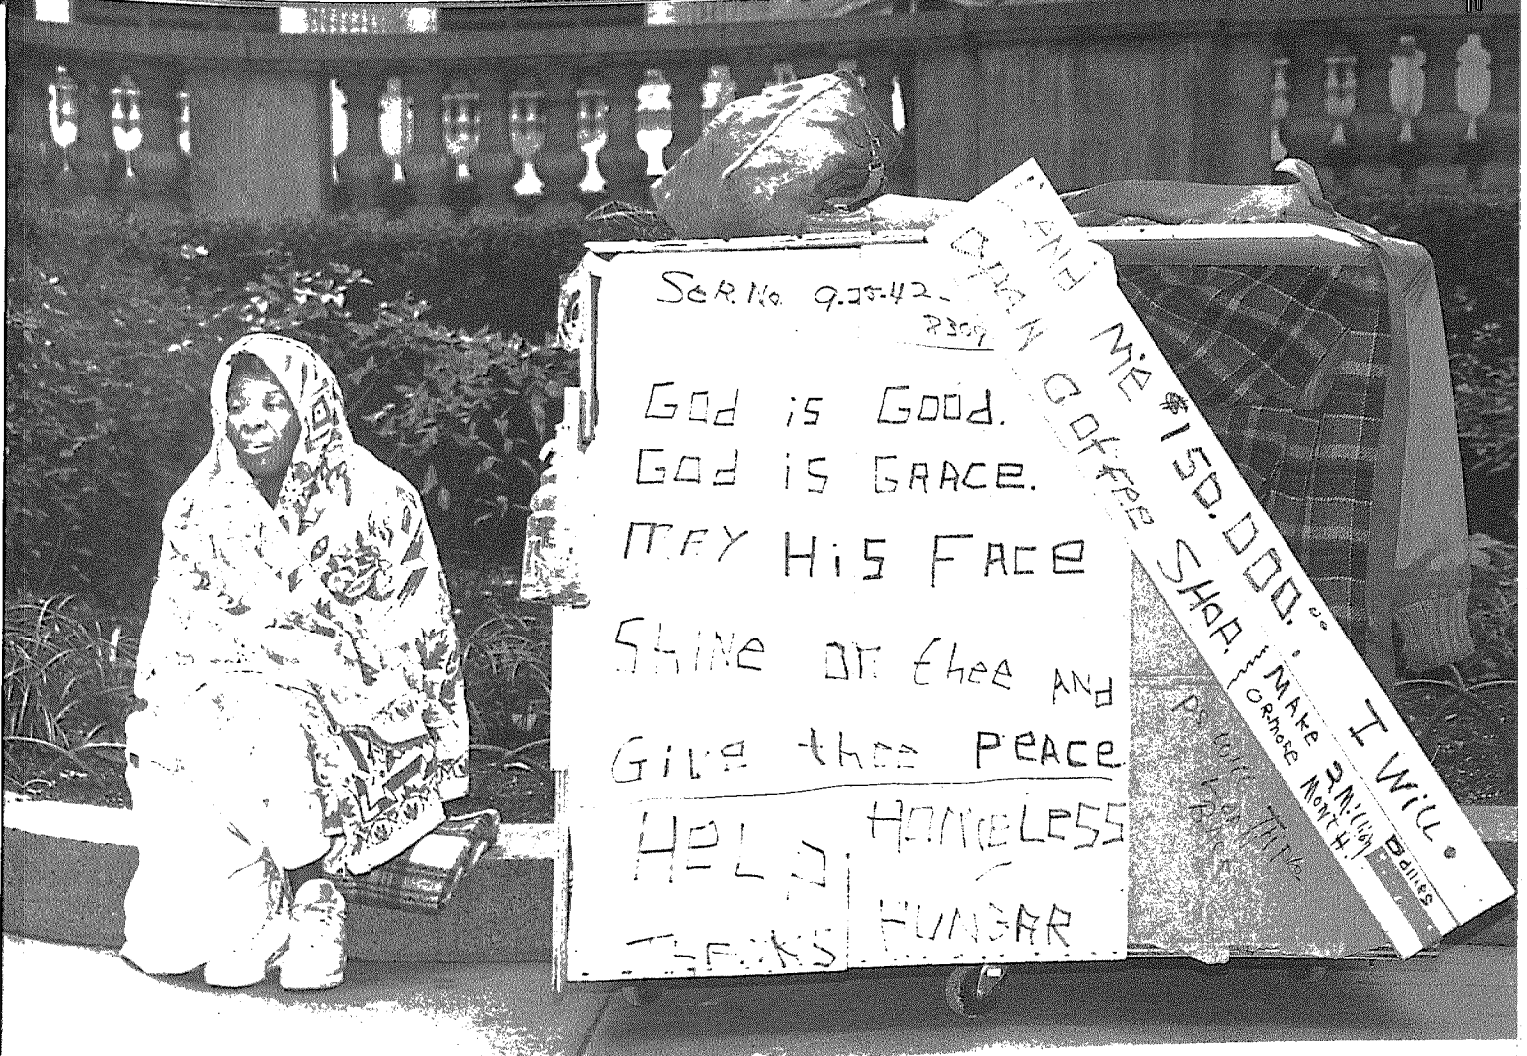 SeR. No. 9-25-42-
8309
God is Good.
God is GRACE.
MAY HiS FACE
SHiNe on thee ANd
Give thee PEACE
HELP. HOMELESS
THANKS HUNGAR
LAND Me $150.000. I Will.
OPAN Coffee SHOP. MAKe 2 Million Dollies
ORMORE MONTH.
PS will